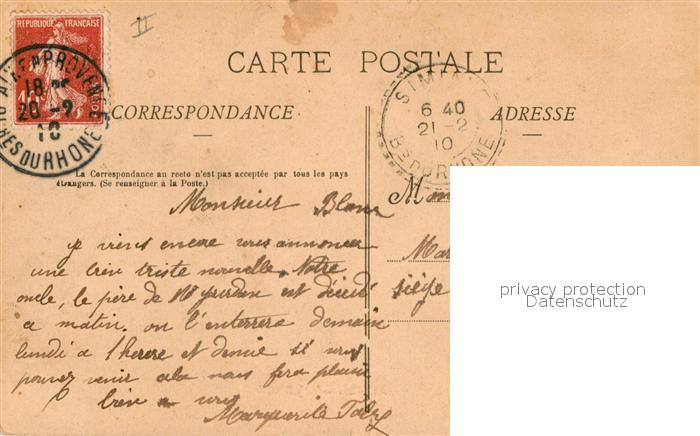 RÉPUBLIQUE FRANÇAISE
II
AIX-EN-PROVENCE
18
20 -2
10
BCHES DU RHONE
CARTE POSTALE
CORRESPONDANCE
ADRESSE
SIMIANE
6 40
21 -2
10
Bes DU RHONE
La Correspondance au recto n'est pas acceptée par tous les pays
étrangers. (Se renseigner à la Poste.)
Monsieur Blanc
je viens encore vous annoncer
une bien triste nouvelle. Notre
oncle, le père de Mr est décédé
ce matin. on l'enterrera demain
lundi a 1 heure et demie si vous
pouvez venir cela nous fera plaisir
bien a vous
Marguerite
Mon
Mar
siège
privacy protection
Datenschutz